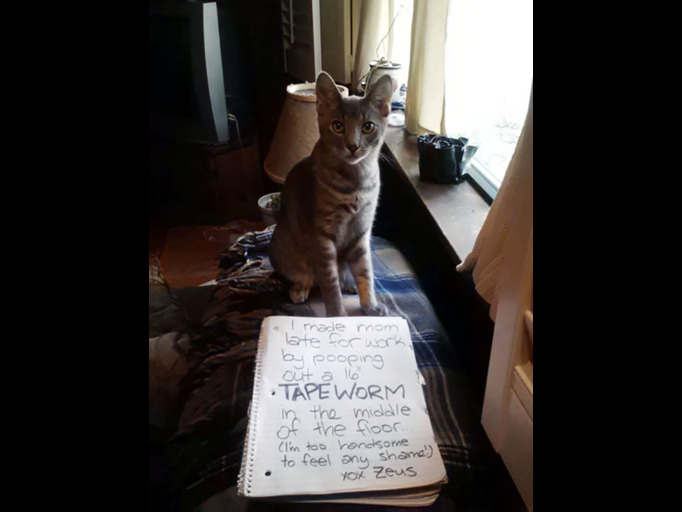 I made mom
late for work
by pooping
out a 16"
TAPEWORM
in the middle
of the floor...
(I'm too handsome
to feel any shame!)
xox Zeus